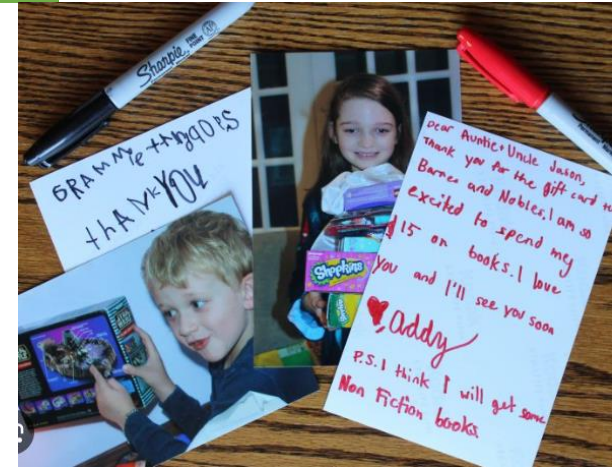 Sharpie
FINE POINT
AP
GRAMMie + 
thANKYOU
Shopkins
Dear Auntie + Uncle Jason,
Thank you for the gift card to
Barnes and Nobles. I am so
excited to spend my
$15 on books. I love
you and I'll see you soon
♥, addy
P.S. I think I will get some
Non Fiction books